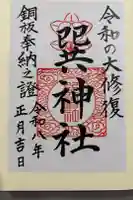 令和の大修復
巽神社
令和八年
正月吉日
銅板奉納之證